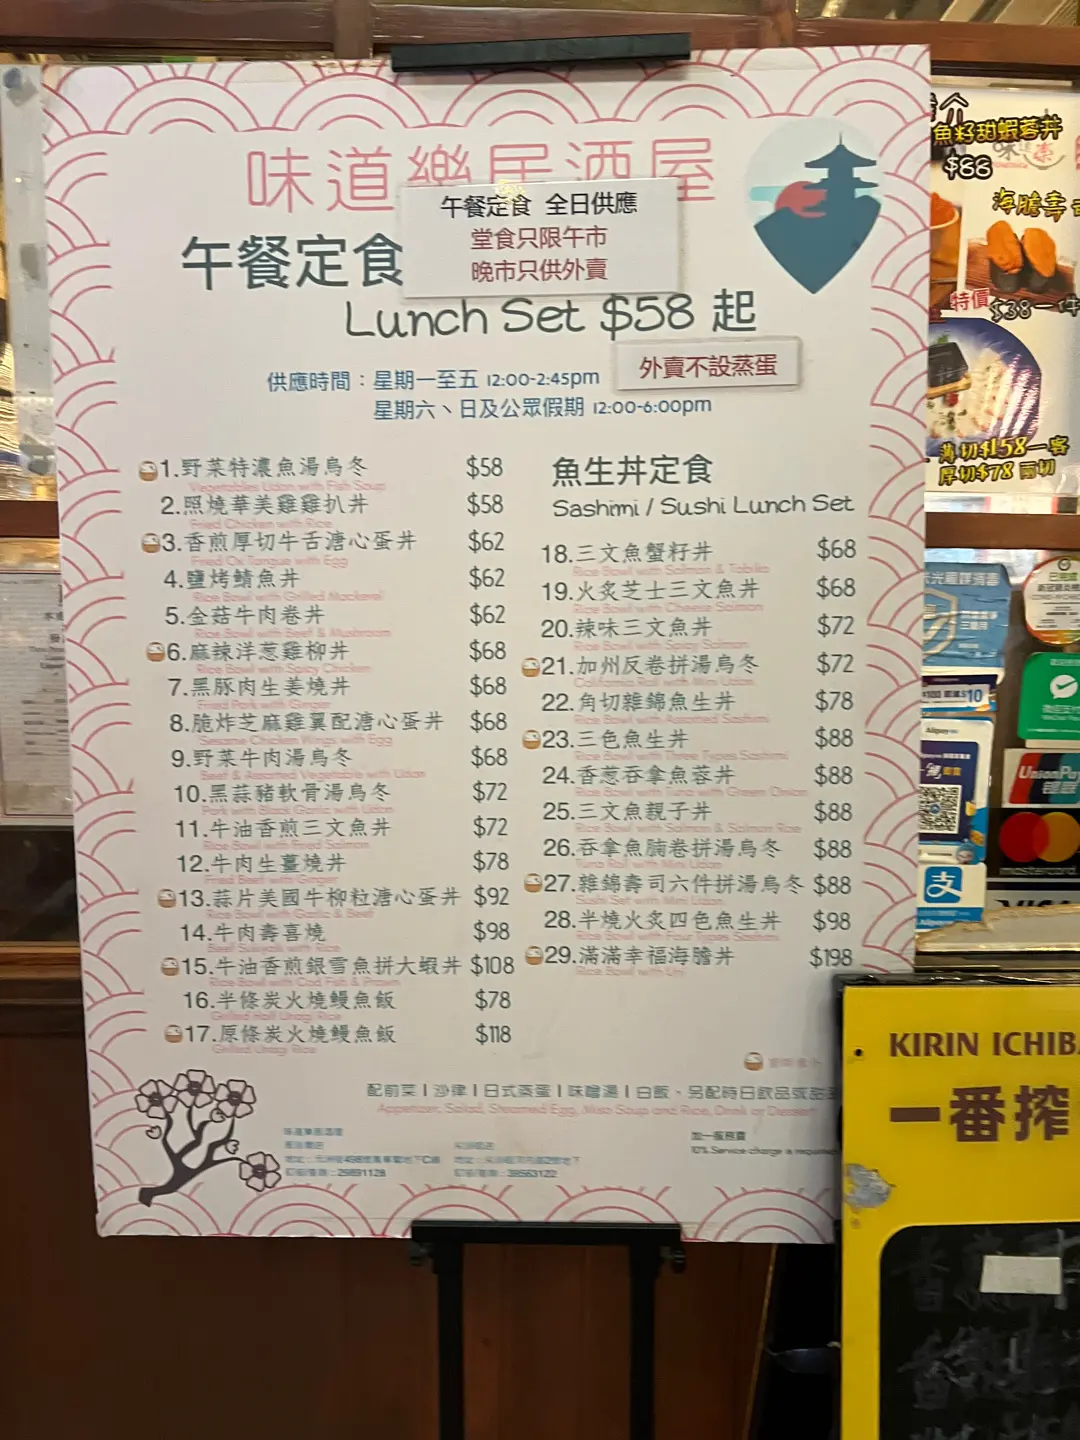 味道樂居酒屋
午餐定食 全日供應
堂食只限午市
晚市只供外賣
午餐定食
Lunch Set $58 起
外賣不設蒸蛋
供應時間：星期一至五 12:00-2:45pm
星期六、日及公眾假期 12:00-6:00pm
1.野菜特濃魚湯烏冬 $58
Vegetables Udon with Fish Soup
2.照燒華美雞雞扒丼 $58
Fried Chicken with Rice
3.香煎厚切牛舌溏心蛋丼 $62
Fried Ox Tongue with Egg
4.鹽烤鯖魚丼 $62
Rice Bowl with Grilled Mackerel
5.金菇牛肉卷丼 $62
Rice Bowl with Beef & Mushroom
6.麻辣洋葱雞柳丼 $68
Rice Bowl with Spicy Chicken
7.黑豚肉生姜燒丼 $68
Fried Pork with Ginger
8.脆炸芝麻雞翼配溏心蛋丼 $68
Sesame Chicken Wings with Egg
9.野菜牛肉湯烏冬 $68
Beef & Assorted Vegetable with Udon
10.黑蒜豬軟骨湯烏冬 $72
Pork with Black Garlic with Udon
11.牛油香煎三文魚丼 $72
Rice Bowl with Fried Salmon
12.牛肉生薑燒丼 $78
Fried Beef with Ginger
13.蒜片美國牛柳粒溏心蛋丼 $92
Rice Bowl with Garlic & Beef
14.牛肉壽喜燒 $98
Beef Sukiyaki with Rice
15.牛油香煎銀雪魚拼大蝦丼 $108
Rice Bowl with Cod Fish & Prawn
16.半條炭火燒鰻魚飯 $78
Grilled Half Unagi Rice
17.原條炭火燒鰻魚飯 $118
Grilled Unagi Rice
魚生丼定食
Sashimi / Sushi Lunch Set
18.三文魚蟹籽丼 $68
Rice Bowl with Salmon & Tobiko
19.火炙芝士三文魚丼 $68
Rice Bowl with Cheese Salmon
20.辣味三文魚丼 $72
Rice Bowl with Spicy Salmon
21.加州反卷拼湯烏冬 $72
California Roll with Mini Udon
22.角切雜錦魚生丼 $78
Rice Bowl with Assorted Sashimi
23.三色魚生丼 $88
Rice Bowl with Three Types Sashimi
24.香葱吞拿魚蓉丼 $88
Rice Bowl with Tuna with Green Onion
25.三文魚親子丼 $88
Rice Bowl with Salmon & Salmon Roe
26.吞拿魚腩卷拼湯烏冬 $88
Tuna Roll with Mini Udon
27.雜錦壽司六件拼湯烏冬 $88
Sushi Set with Mini Udon
28.半燒火炙四色魚生丼 $98
Rice Bowl with Four Types Sashimi
29.滿滿幸福海膽丼 $198
Rice Bowl with Uni
配前菜 | 沙律 | 日式蒸蛋 | 味噌湯 | 白飯，另配時日飲品或甜品
Appetizer, Salad, Steamed Egg, Miso Soup and Rice, Drink or Dessert
加一服務費
10% Service charge is required
味道樂居酒屋
魚籽甜蝦蓉丼
$88
海膽壽
特價 $38一件
薄切$158一客
厚切$78 兩切
Alipay
UnionPay
银联
mastercard
VISA
支
KIRIN ICHIBA
一番搾